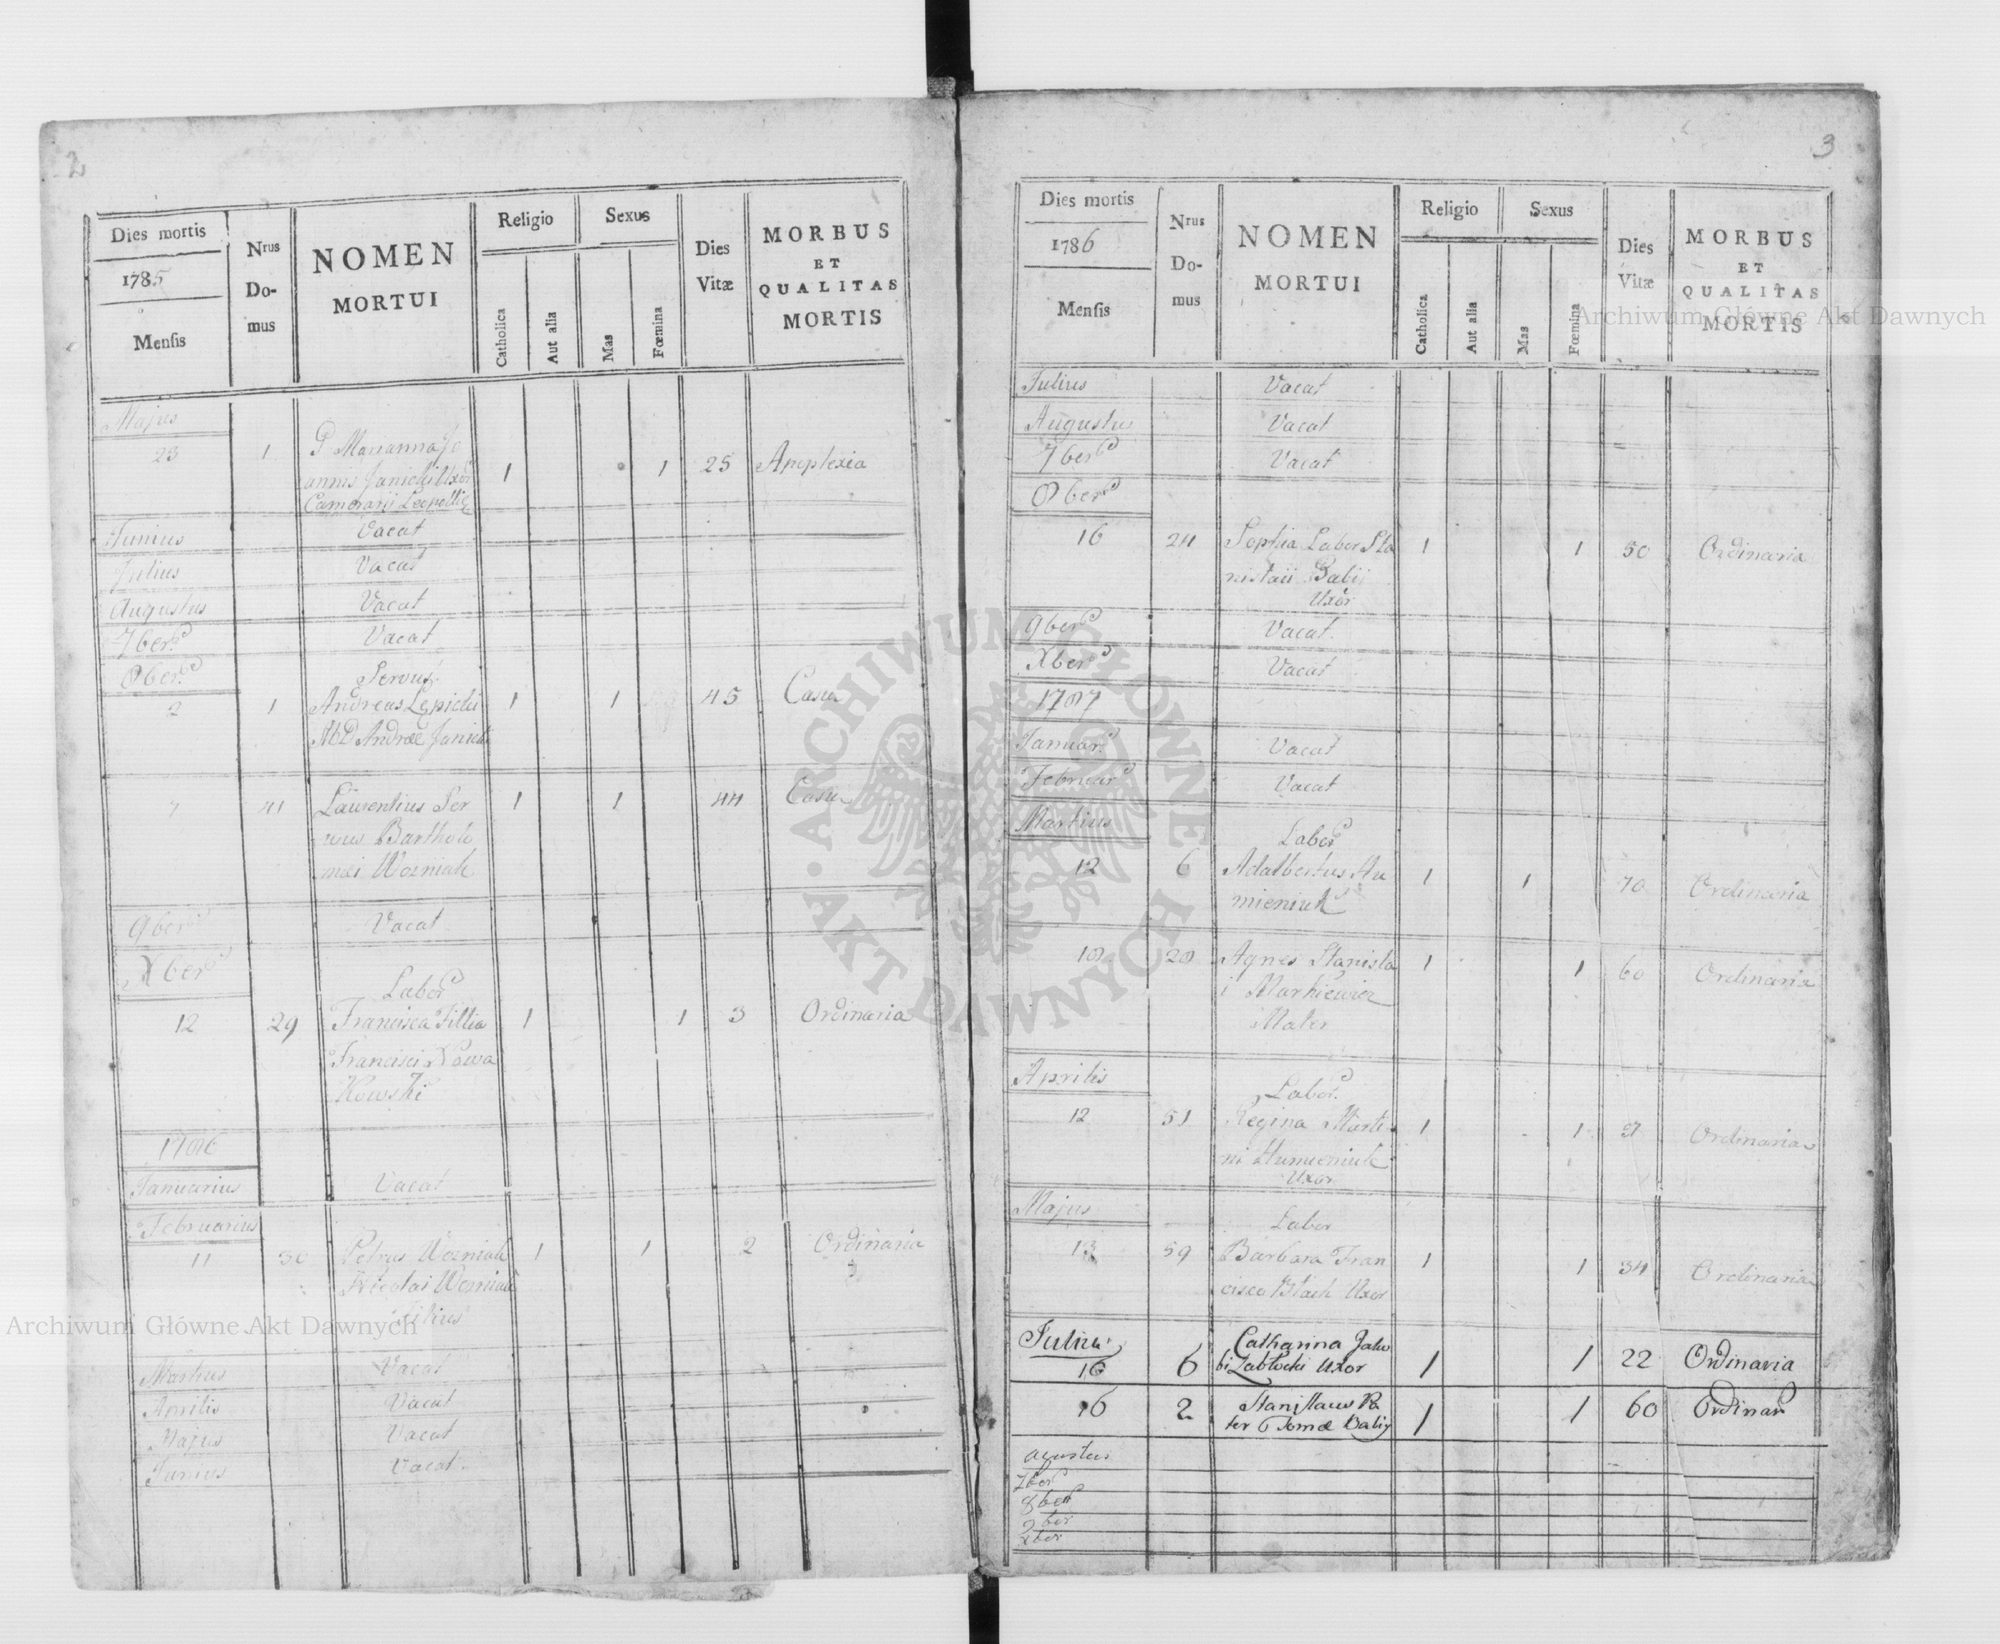 2
Dies mortis
1785
Mensis
Nrus Do-
mus
NOMEN
MORTUI
Religio
Catholica
Aut alia
Sexus
Mas
Fœmina
Dies
Vitæ
MORBUS
ET
QUALITAS
MORTIS
Majus
23 1 G Marianna Jo
annis Janicki Uxor 1 1 25 Apoplexia
Camerarii Leopolliē
Junius Vacat
Julius Vacat
Augustus Vacat
7ber Vacat
8ber Servus
2 1 Andreas Lepicki 1 1 45 Casu
MD Andreæ Janicki
7 41 Laurentius Ser 1 1 44 Casu
vus Bartholo
mei Wozniak
9ber Vacat
Xber Labor
12 29 Francisca Fillia 1 1 3 Ordinaria
Francisci Nowa
Kowski
1786
Januarius Vacat
Februarius
11 30 Petrus Wozniak 1 1 2 Ordinaria
Nicolai Wozniak
filius
Martius Vacat
Aprilis Vacat
Majus Vacat
Junius Vacat
3
Dies mortis
1786
Mensis
Nrus
Do-
mus
NOMEN
MORTUI
Religio
Catholica
Aut alia
Sexus
Mas
Fœmina
Dies
Vitæ
MORBUS
ET
QUALITAS
MORTIS
Julius Vacat
Augustus Vacat
7ber Vacat
8ber
16 24 Sophia Labor Sta 1 1 50 Ordinaria
nislaii Babij
Uxor
9ber Vacat
Xber Vacat
1787
Januar Vacat
Februar Vacat
Martius Labor
12 6 Adalbertus Hu 1 1 70 Ordinaria
mieniuk
18 28 Agnes Stanisla 1 1 60 Ordinaria
i Markiewicz
Mater
Aprilis Labor
12 51 Regina Marti 1 1 37 Ordinaria
ni Humieniuk
Uxor
Majus Labor
13 59 Barbara Fran 1 1 34 Ordinaria
cisco Btach Uxor
Julius Catharina Jaku
16 6 bi Zabłocki Uxor 1 1 22 Ordinaria
16 2 Stanislaus Pa 1 1 60 Ordinar
ter Tomæ Babij
agustus
7ber
8ber
9ber
Xber
Archiwum Główne Akt Dawnych
Archiwum Główne Akt Dawnych
· ARCHIWUM GŁÓWNE · AKT DAWNYCH